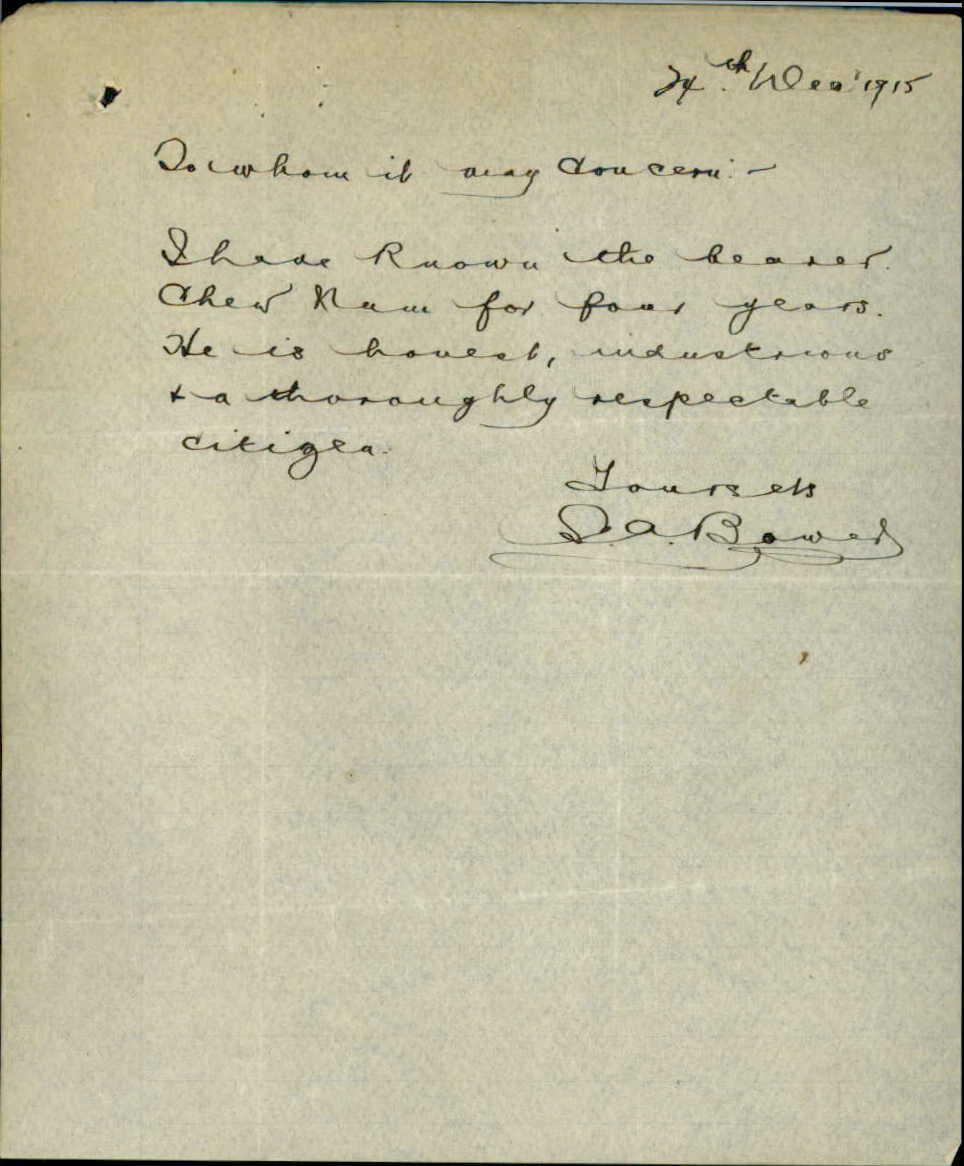 24th. Dec' 1915
To whom it may concern:-
I have known the bearer.
Chew Nam for four years.
He is honest, industrious
& a thoroughly respectable
citizen.
Yours etc
A. Bower